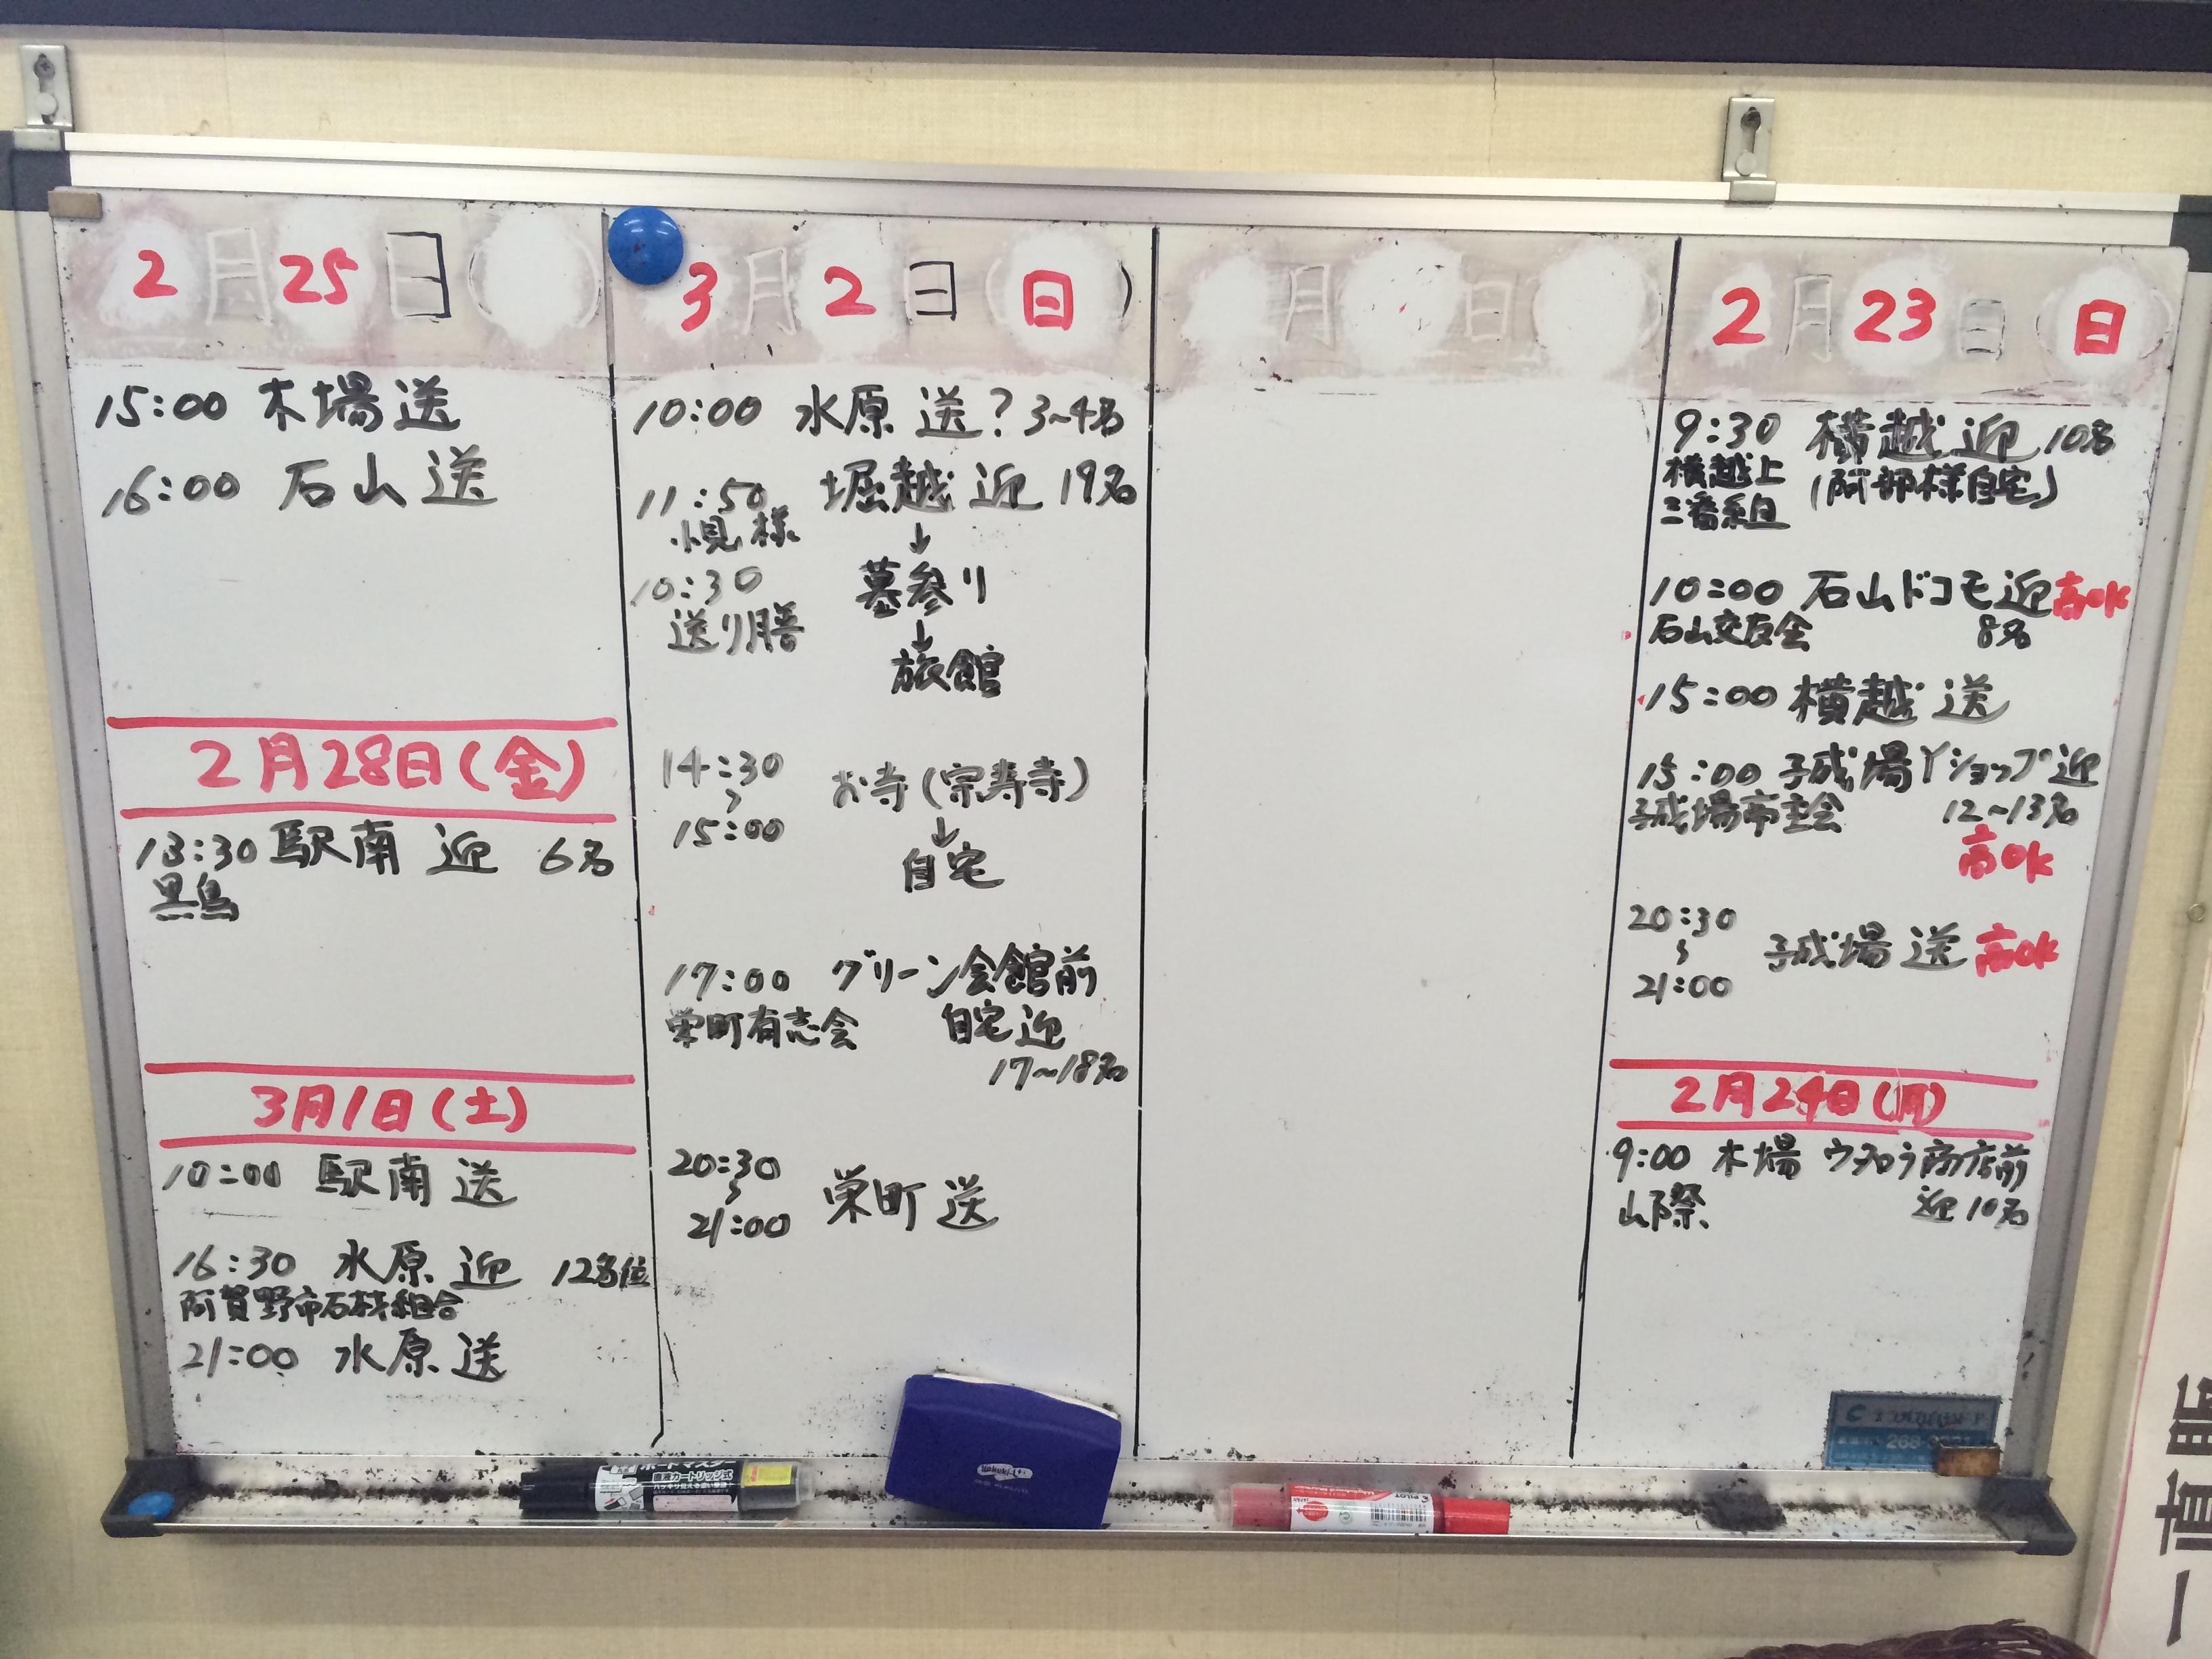 2月25日( )
15:00 木場 送
16:00 石山 送
2月28日(金)
13:30 駅南 迎 6名
黒鳥
3月1日(土)
10:00 駅南 送
16:30 水原 迎 12名位
阿賀野市石材組合
21:00 水原 送
3月2日(日)
10:00 水原 送? 3~4名
11:50 堀越 迎 19名
小見 様
↓
10:30 墓参り
送り膳
↓
旅館
14:30
〜
15:00
お寺(宗寿寺)
↓
自宅
17:00 グリーン会館前
栄町有志会 自宅 迎
17~18名
20:30
〜
21:00
栄町 送
月 日
2月23日(日)
9:30 横越 迎 10名
横越上 (阿部様自宅)
三番組
10:00 石山ドコモ 迎 高ok
石山交友会 8名
15:00 横越 送
15:00 子成場Yショップ 迎
子成場亭主会 12~13名
高ok
20:30
〜
21:00
子成場 送 高ok
2月24日(月)
9:00 木場 商店前
山際 迎 10名
ボードマスター
直液カートリッジ式
PILOT
268-
一直販